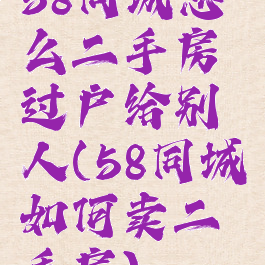 58同城怎
么二手房
过户给别
人(58同城
如何卖二
手房)